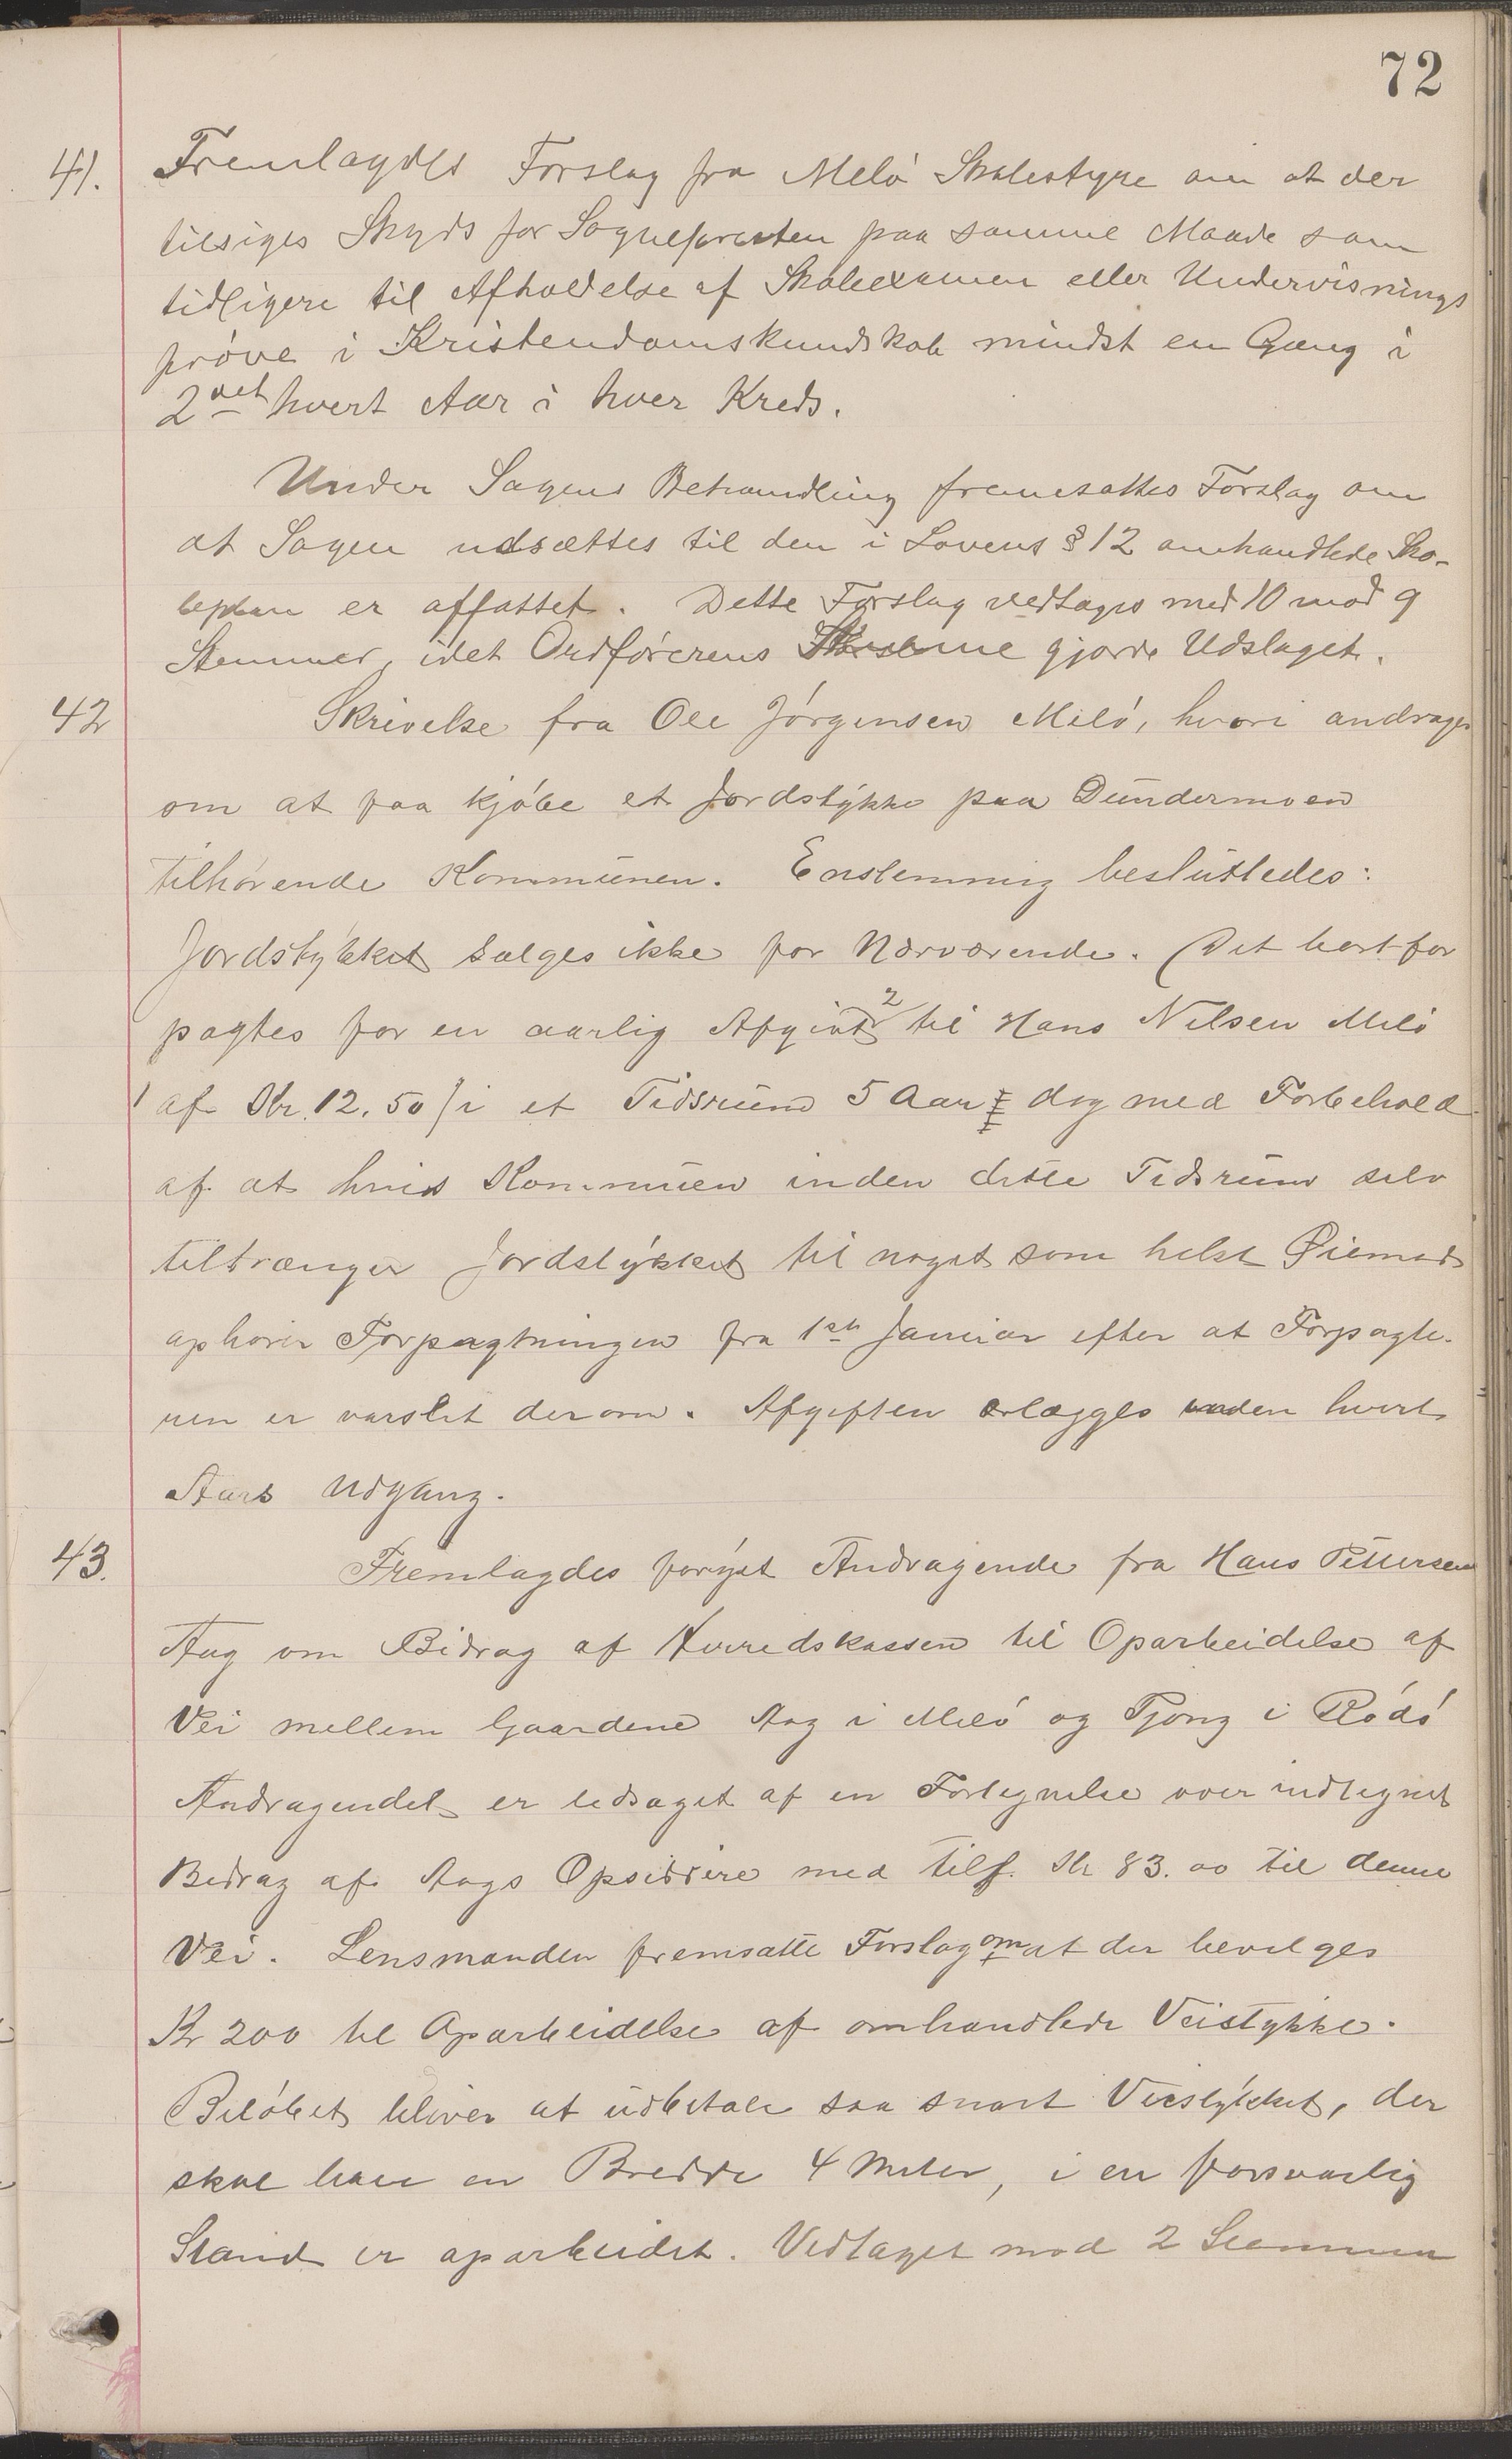 72
41. Fremlagdes Forslag fra Melö Skolestyre om at der
tilsiges Skyds for Sognepresten paa samme Maade som
tidligere til Afholdelse af Skoleexamen eller Undervisnings
pröve i Kristendomskundskab mindst en Gang i
2det hvert Aar i hver Kreds.
Under Sagens Behandling fremsattes Forslag om
at Sagen udsættes til den i Lovens § 12 omhandlede Sko-
leplan er affattet. Dette Forslag vedtages med 10 mod 9
Stemmer, idet Ordförerens Stemme gjorde Udslaget.
42 Skrivelse fra Ole Jörgensen Melö, hvori andrages
om at faa kjöbe et Jordstykke paa Dundermoen
tilhörende Kommunen. Enstemmig besluttedes:
Jordstykket sælges ikke for Nærværende. (Det bortfor
pagtes for en aarlig Afgivt 2 til Hans Nilsen Melö
1 af Kr. 12.50) i et Tidsrum 5 Aar dog med Forbehold
af at hvis Kommunen inden dette Tidsrum selv
tiltrænger Jordstykket til noget som helst Øiemed
ophörer Forpagtningen fra 1ste Januar efter at Forpagte-
ren er varslet derom. Afgiften erlægges inden hvert
Aars Udgang.
43. Fremlagdes fornyet Andragende fra Hans Pettersen
Aag om Bidrag af Herredskassen til Oparbeidelse af
Vei mellem Gaardene Aag i Melö og Tjong i Rödö
Andragendet er ledsaget af en Fortegnelse over indtegnet
Bidrag af Aags Opsiddere med tils. Kr 83.00 til denne
Vei. Lensmanden fremsatte Forslag om at der bevilges
Kr 200 til Oparbeidelse af omhandlede Veistykke.
Belöbet bliver at udbetale saa snart Veistykket, der
skal have en Bredde 4 Meter, i en forsvarlig
Stand er oparbeidet. Vedtaget mod 2 Stemmer